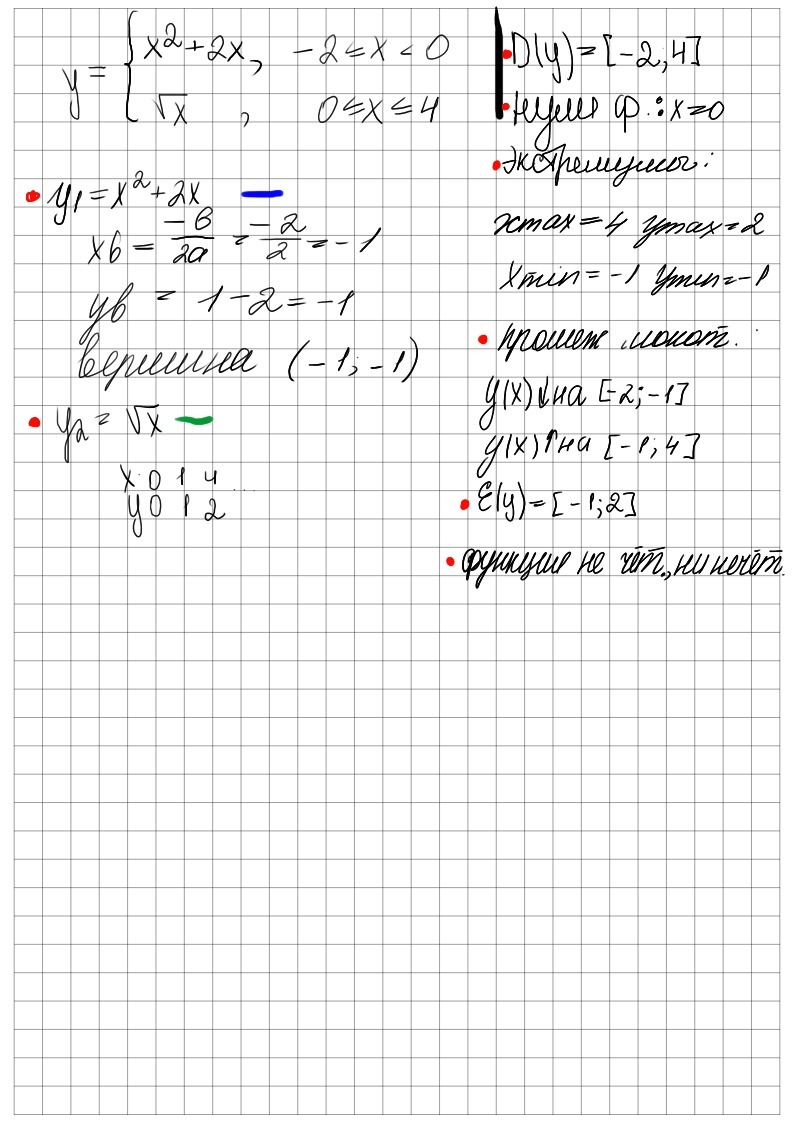 y = { x² + 2x, -2 ≤ x < 0
√x , 0 ≤ x ≤ 4
• y₁ = x² + 2x
xв = -в/2a = -2/2 = -1
yв = 1 - 2 = -1
вершина (-1; -1)
• y₂ = √x
x 0 1 4 ...
y 0 1 2
• D(y) = [-2; 4]
• нули ф.: x = 0
• экстремумы:
xmax = 4 ymax = 2
xmin = -1 ymin = -1
• промеж. монот.:
y(x) ↓ на [-2; -1]
y(x) ↑ на [-1; 4]
• E(y) = [-1; 2]
• функция не чёт., ни нечёт.